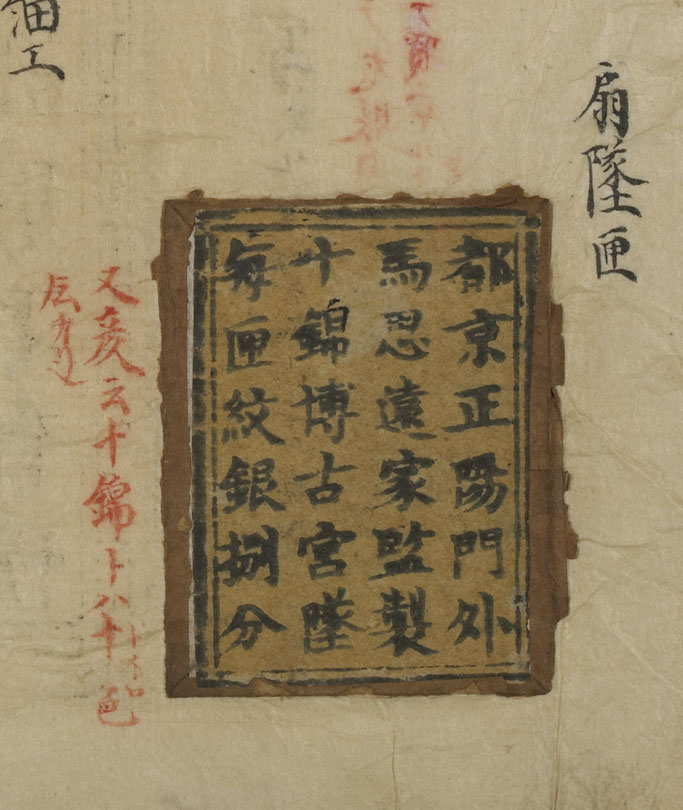 扇墜匣
都京正陽門外
馬思遠家監製
十錦博古宮墜
每匣紋銀捌分
又亥云十錦トハ十
色
油工